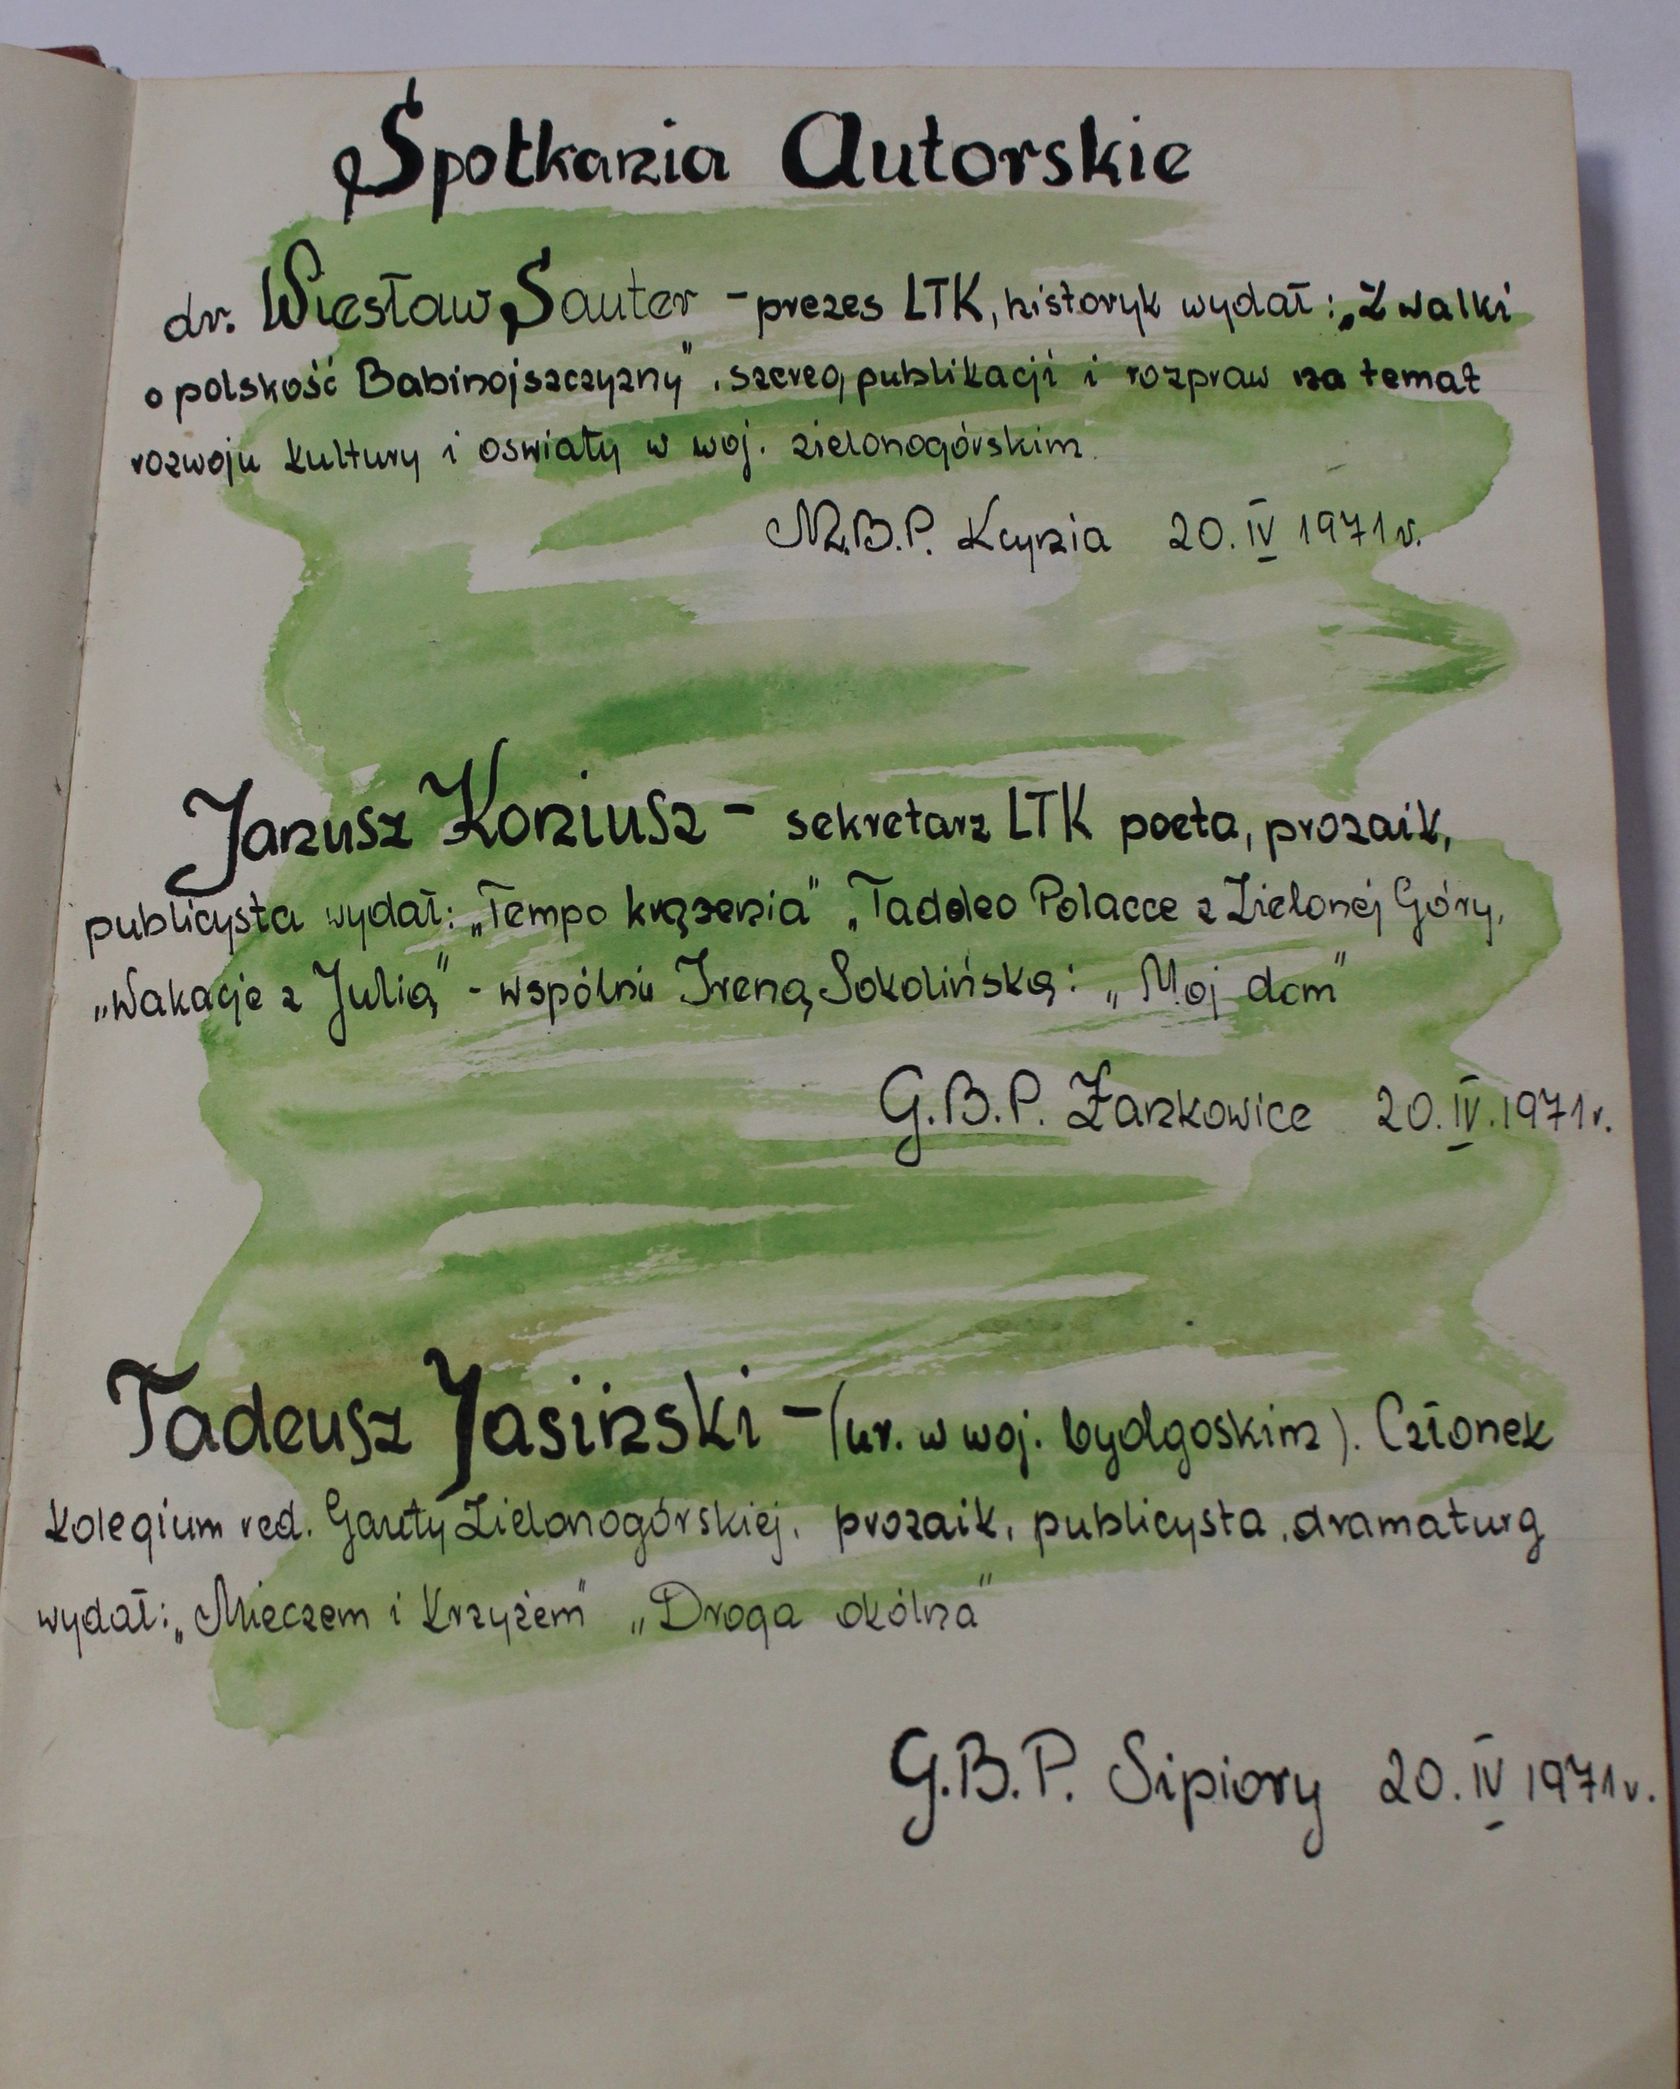 Spotkania Autorskie
dr. Wiesław Sauter - prezes LTK, historyk wydał: „Z walki
o polskość Babinojszczyzny", szereg publikacji i rozpraw na temat
rozwoju kultury i oswiaty w woj. zielonogórskim.
M.B.P. Kcynia 20. IV 1971 r.
Janusz Koniusz - sekretarz LTK poeta, prozaik,
publicysta wydał: „Tempo krążenia" „Taddeo Polacce z Zielonej Góry,
„Wakacje z Julią" - wspólnie Ireną Sokolińską: „Moj dom"
G.B.P. Zankowice 20. IV. 1971 r.
Tadeusz Jasinski - (ur. w woj. bydgoskim). Członek
kolegium red. Gazety Zielonogórskiej, prozaik, publicysta, dramaturg
wydał: „Mieczem i Krzyżem" „Droga okólna"
G.B.P. Sipiory 20. IV 1971 r.